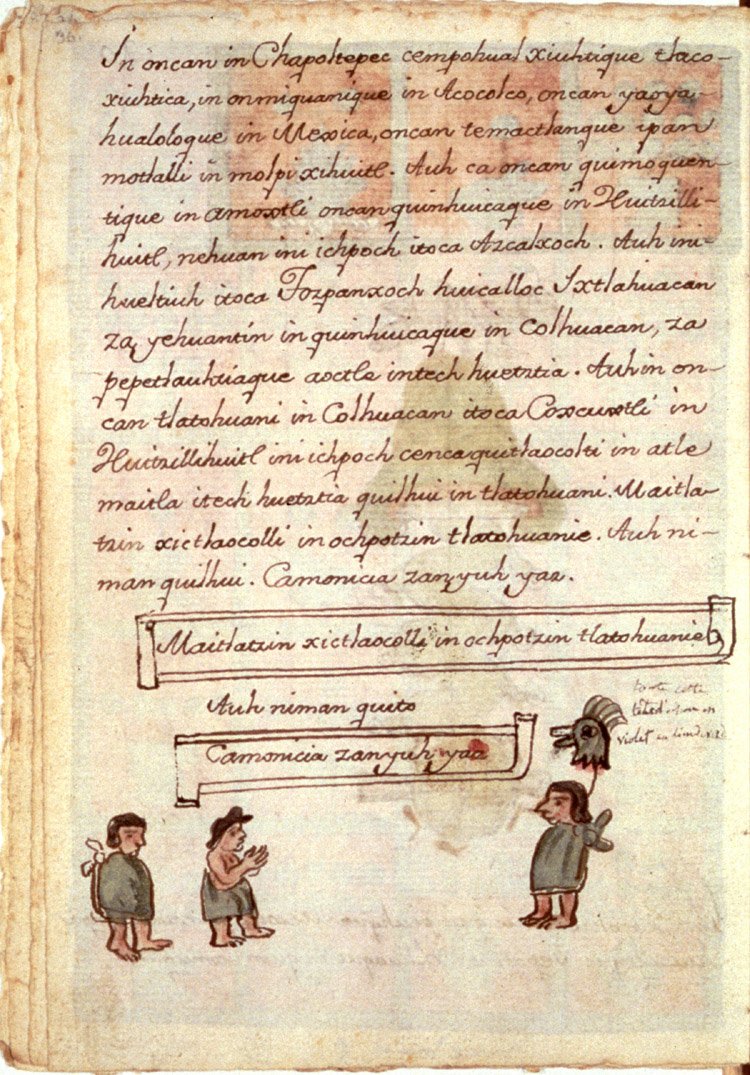 36.
In òncan in Chapoltepec cempohual xiuhtique tlaco-
xiuhtica, in onmiquanique in Acocolco, oncan yaoya-
hualoloque in Mexica, oncan temactlanque ipan
motlalli in molpi xihuitl. Auh ca oncan quimoquen-
tique in amoxtli oncan quinhuicaque in Huitzilli-
huitl, nehuan ini ichpoch itoca Azcalxoch. Auh ini-
hueltiuh itoca Tozpanxoch huicalloc Ixtlahuacan
za yehuantin in quinhuicaque in Colhuacan, za
pepetlauhtiaque aoctle intech huetztia. Auh in on-
can tlatohuani in Colhuacan itoca Coxcuxtli in
Huitzillihuitl ini ichpoch cenca quitlaocolti in atle
maitla itech huetztia quilhui in tlatohuani. Maitla-
tzin xictlaocolli in ochpotzin tlatohuanie. Auh ni-
man quilhui. Camonicia zan yuh yaz.
Maitlatzin xictlaocolli in ochpotzin tlatohuanie
Auh niman quito
Camonicia zan yuh yaz
toute cette
violet